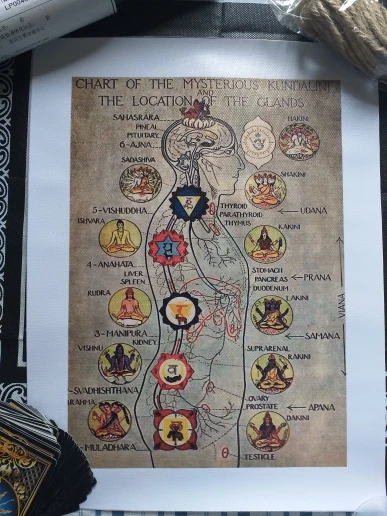 CHART OF THE MYSTERIOUS KUNDALINI
AND
THE LOCATION OF THE GLANDS
SAHASRARA
PINEAL
PITUITARY
6-AJNA
HAKINI
SADASHIVA
SHAKINI
5-VISHUDDHA
THYROID
PARATHYROID
THYMUS
UDANA
ISHVARA
KAKINI
4-ANAHATA
LIVER
SPLEEN
STOMACH
PANCREAS
DUODENUM
PRANA
RUDRA
LAKINI
VYANA
3-MANIPURA
KIDNEY
SAMANA
VISHNU
SUPRARENAL
RAKINI
-SVADHISHTHANA
OVARY
PROSTATE
APANA
BRAHMA
DAKINI
-MULADHARA
TESTICLE